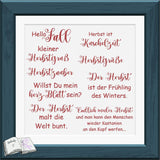 Hello Fall
kleiner
Herbstgruß
Herbstzauber
Willst Du mein
herz Blatt sein?
Der Herbst
malt die
Welt bunt.
Herbst ist
Kuschelzeit
Herbstgrüße
Der Herbst
ist der Frühling
des Winters.
Endlich wieder Herbst
und man kann den Menschen
wieder Kastanien
an den Kopf werfen...